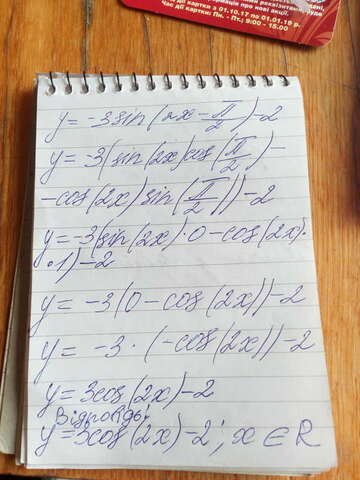 реквізитами, буде
нформація про нові акції.
Час дії картки з 01.10.17 по 01.01.18 р.
Час дії картки: Пн. - Пт.; 9:00 - 15.00
y = -3sin(2x - π/2) - 2
y = -3(sin(2x)cos(π/2) -
-cos(2x)sin(π/2)) - 2
y = -3(sin(2x)·0 - cos(2x)·
·1) - 2
y = -3(0 - cos(2x)) - 2
y = -3·(-cos(2x)) - 2
y = 3cos(2x) - 2
Відповідь:
y = 3cos(2x) - 2; x ∈ R